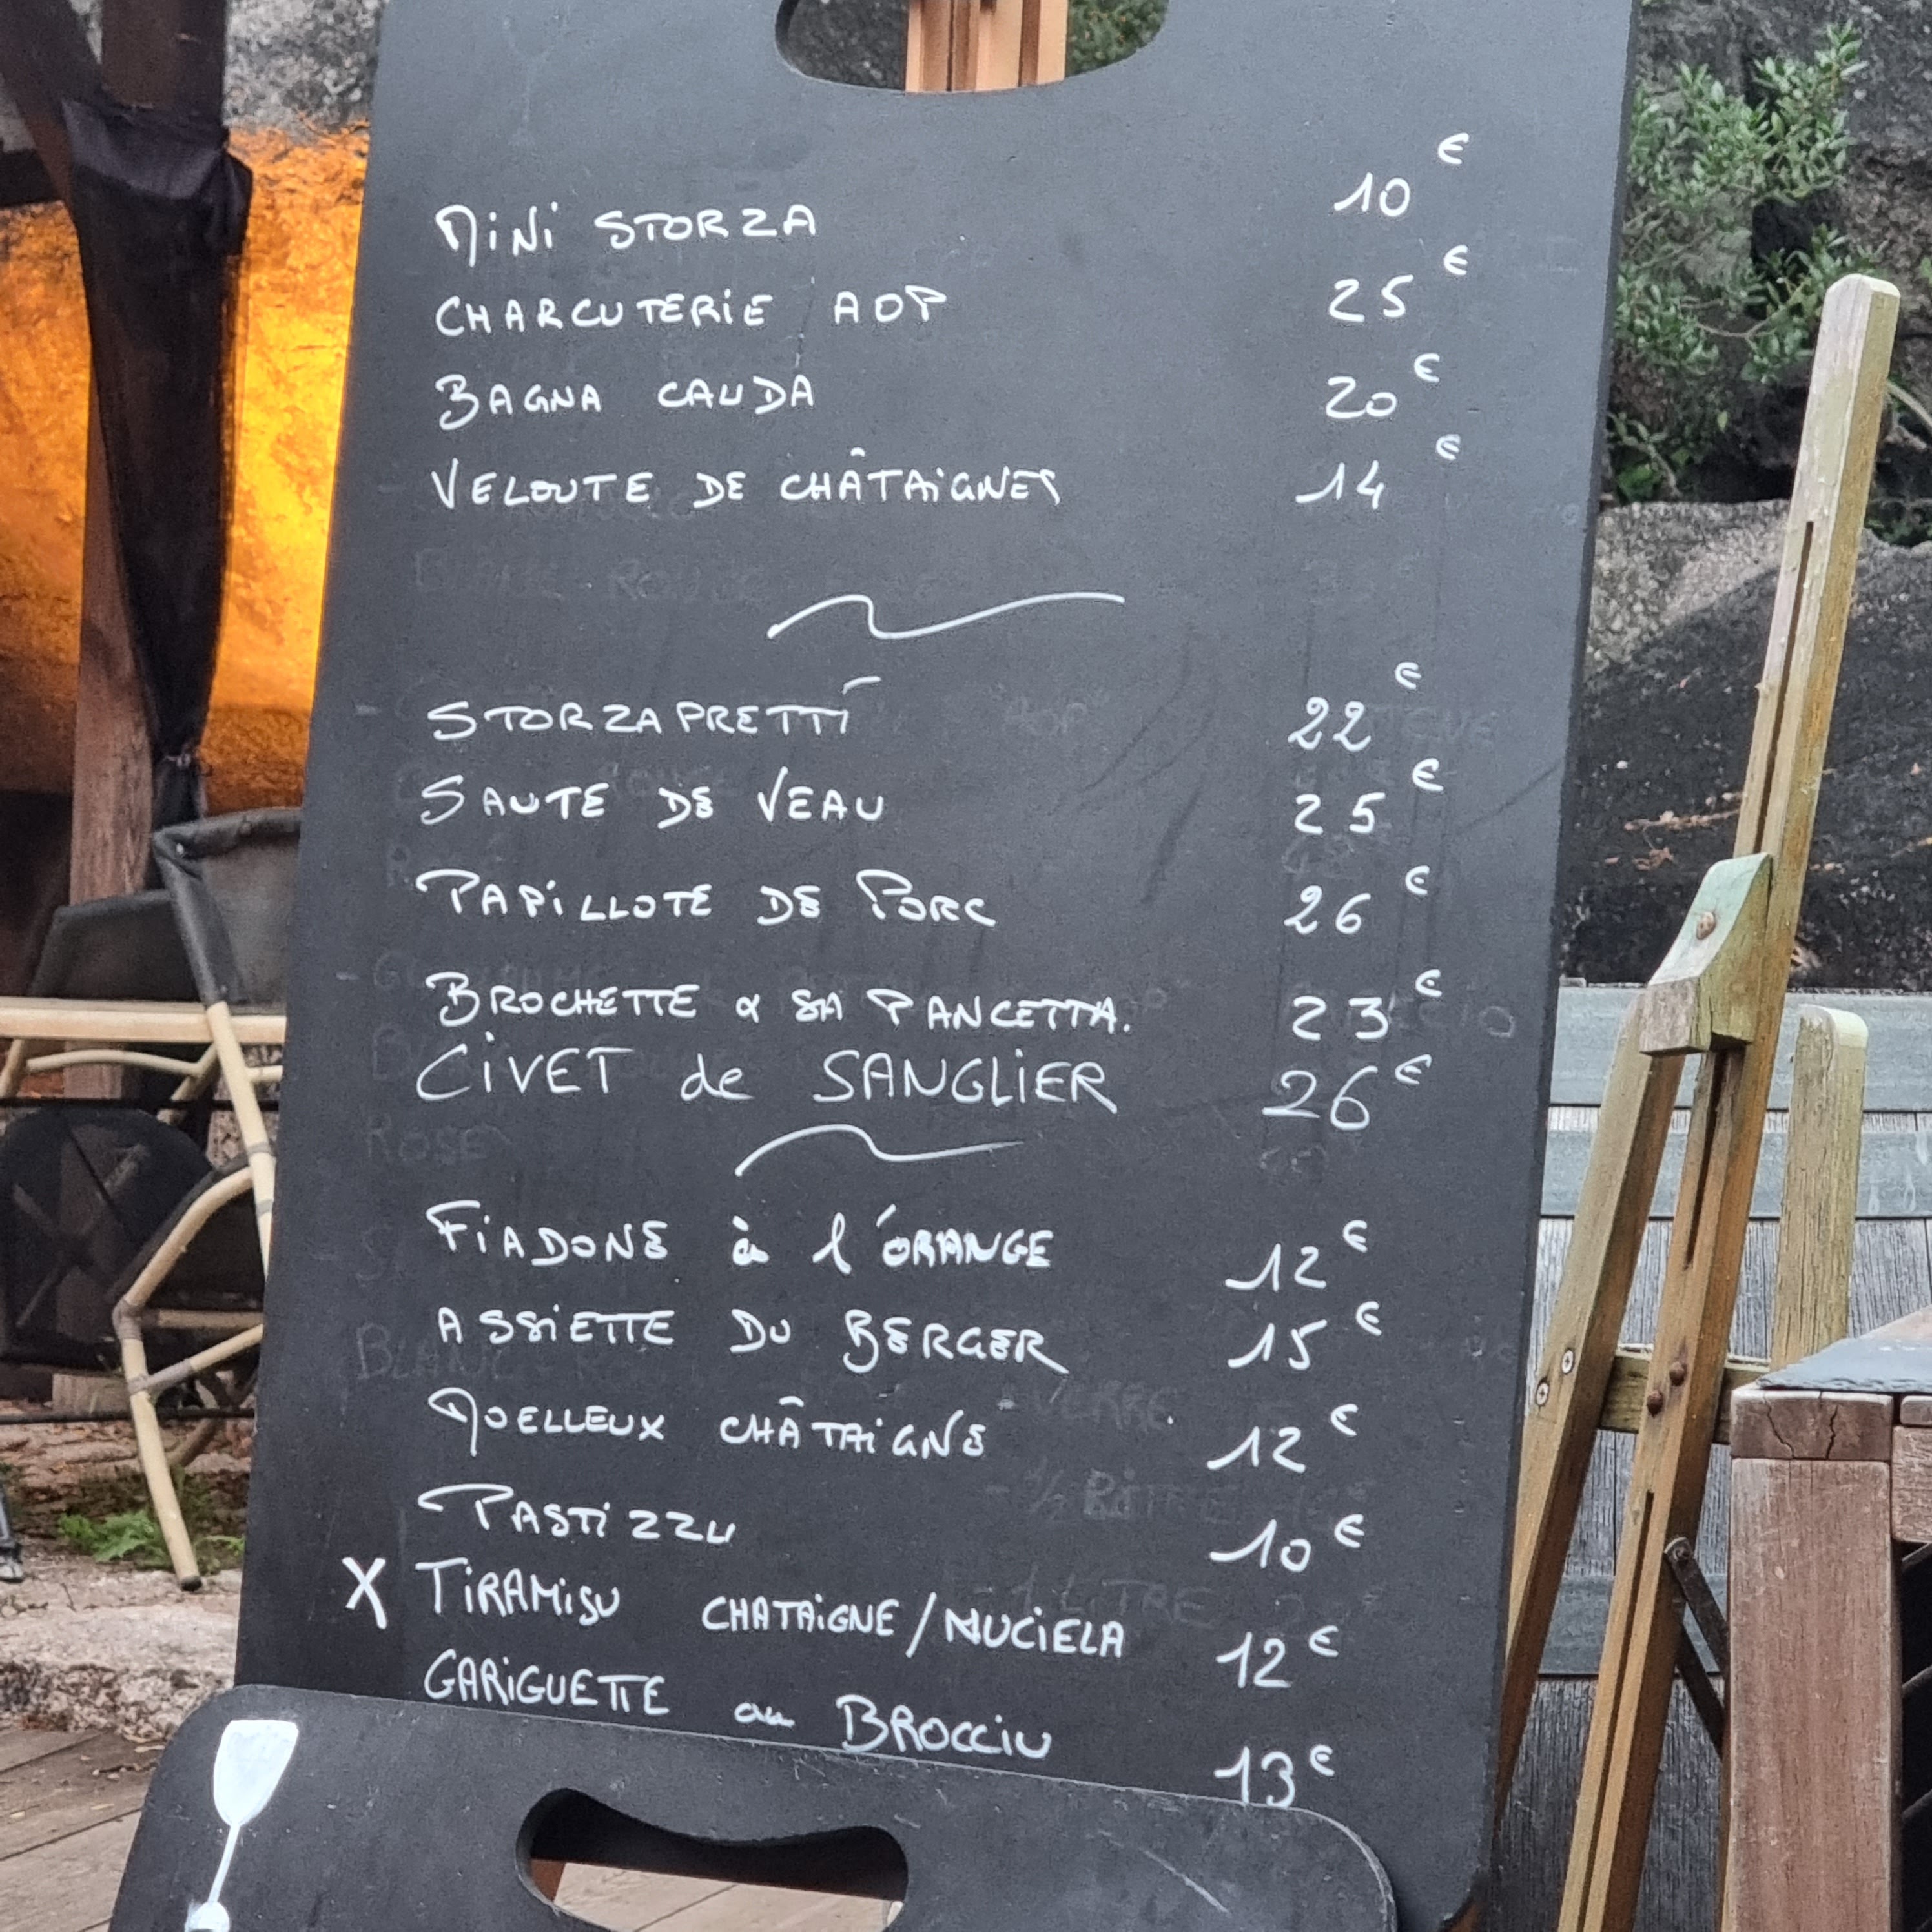 MiNi STORZA 10 €
CHARCUTERIE AOP 25 €
BAGNA CAUDA 20 €
VELOUTE DE CHÂTAiGNES 14 €
STORZAPRETTI 22 €
SAUTE DE VEAU 25 €
PAPiLLOTE DE PORC 26 €
BROCHETTE & SA PANCETTA. 23 €
CiVET de SANGLiER 26 €
FiADONE à l'ORANGE 12 €
ASSiETTE DU BERGER 15 €
MOELLEUX CHÂTAiGNE 12 €
PASTiZZU 10 €
X TiRAMiSU CHATAiGNE/NUCiELA 12 €
GARiGUETTE au BROCCiU 13 €